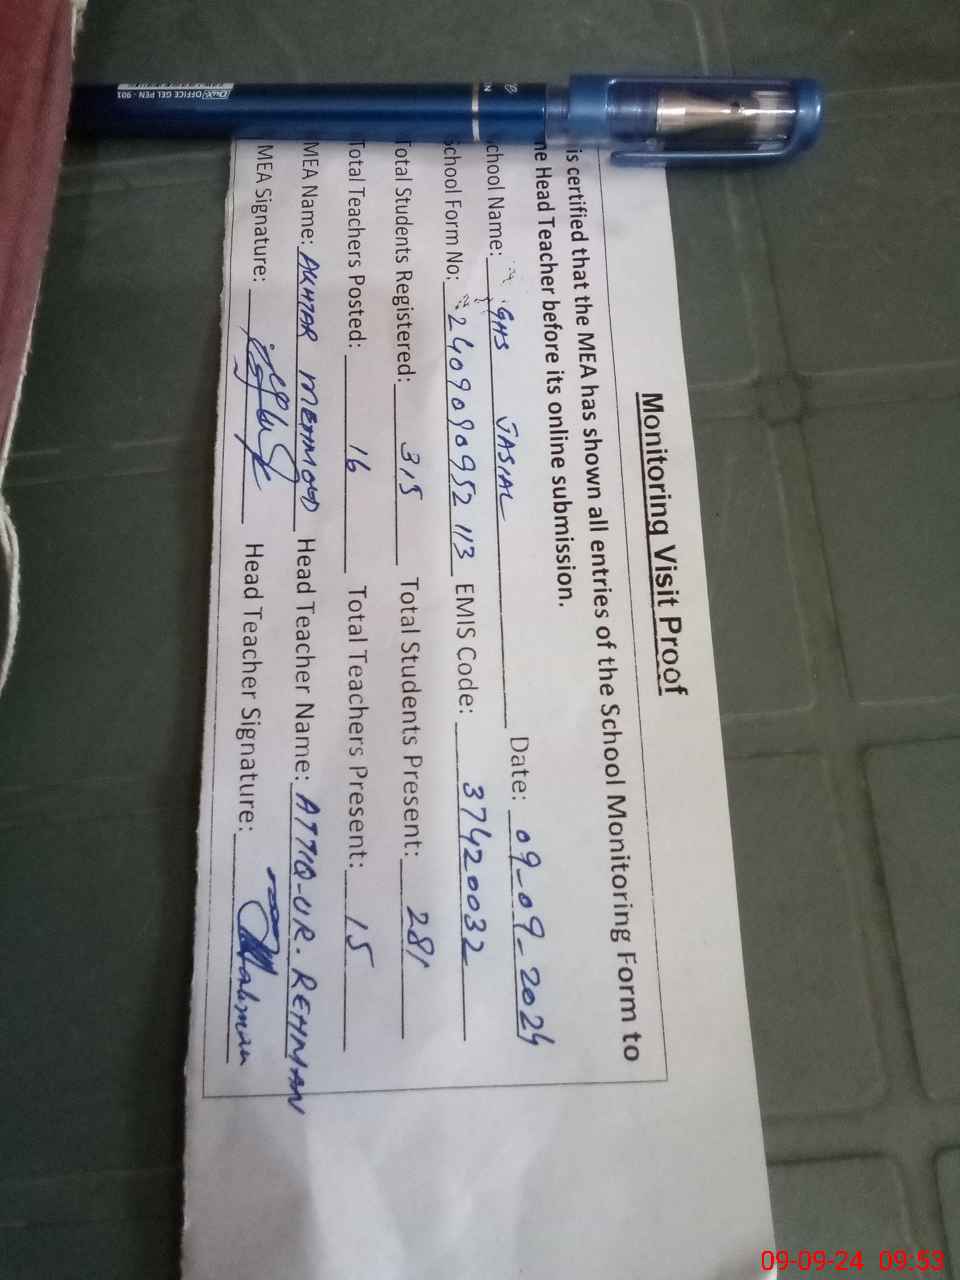 Monitoring Visit Proof
is certified that the MEA has shown all entries of the School Monitoring Form to
he Head Teacher before its online submission.
chool Name: GHS JASIAL Date: 09-09-2024
School Form No: 2409090952113 EMIS Code: 37420032
Total Students Registered: 315 Total Students Present: 281
Total Teachers Posted: 16 Total Teachers Present: 15
MEA Name: AKHTAR MEHMOOD Head Teacher Name: ATTIQ-UR-REHMAN
MEA Signature: Head Teacher Signature: Rahman
OFFICE GEL PEN - 901
09-09-24 09:53